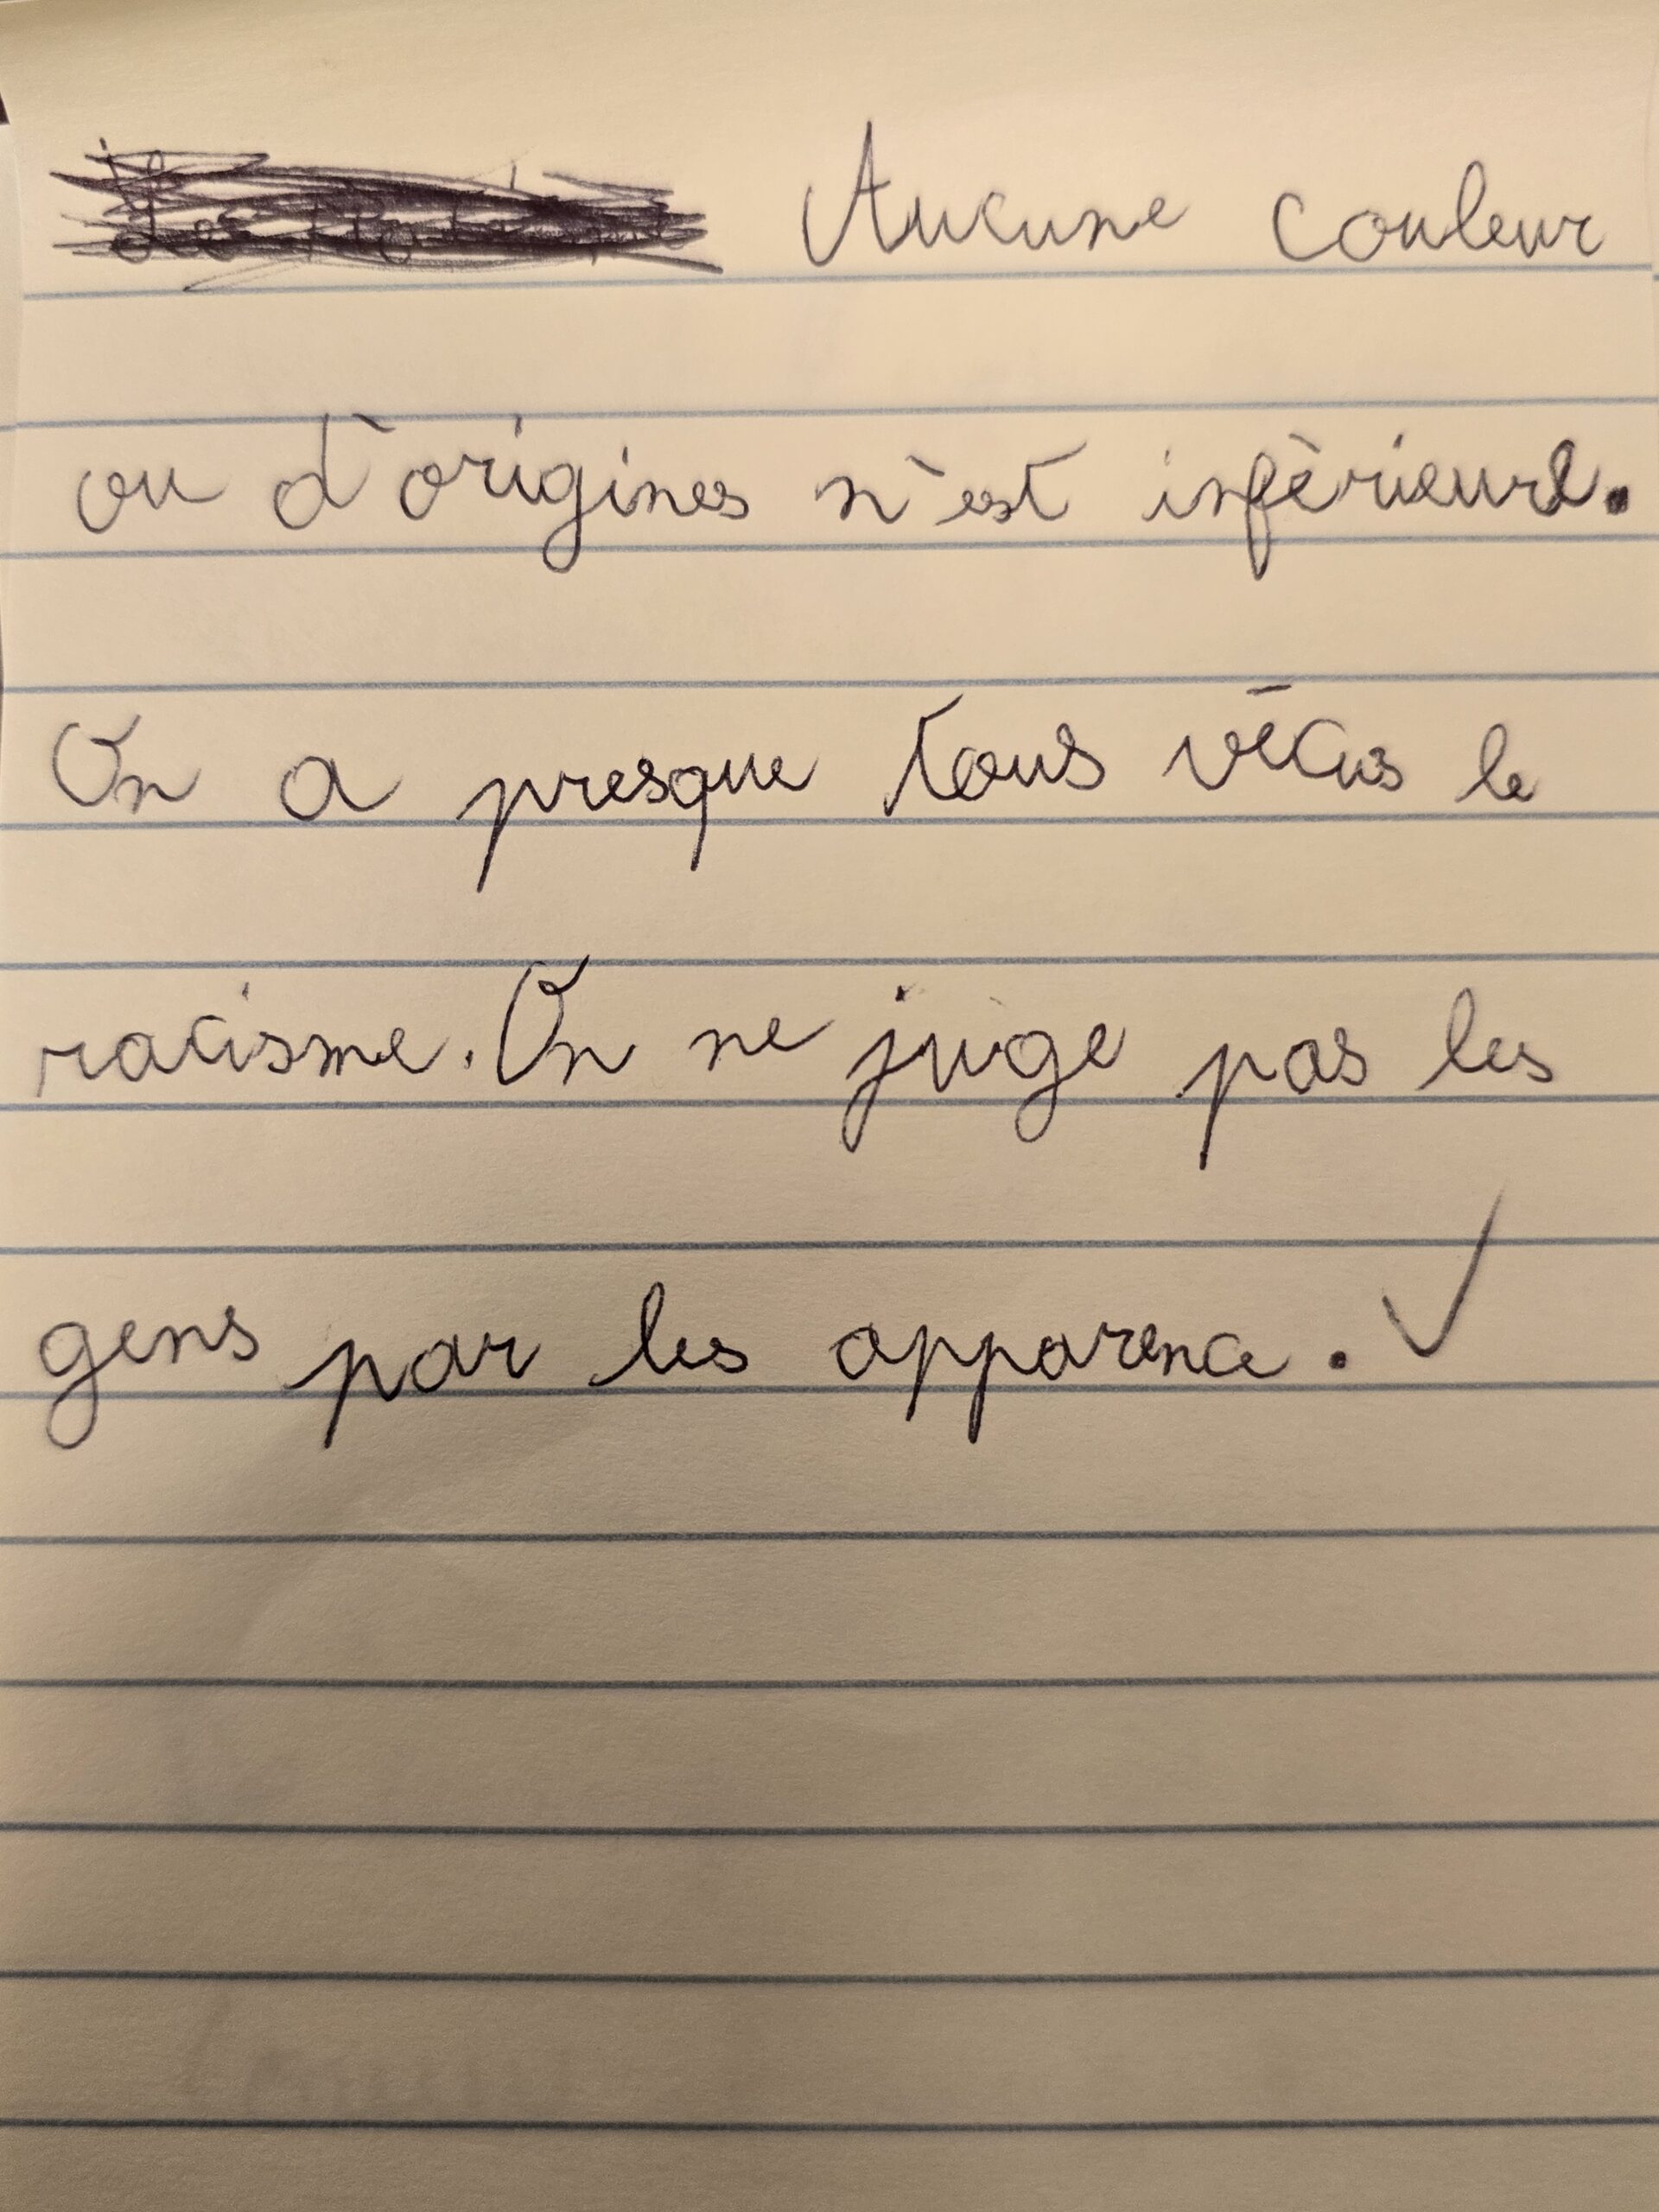 Aucune couleur
ou d'origines n'est infèrieure.
On a presque tous vécus le
racisme. On ne juge pas les
gens par les apparence. ✓